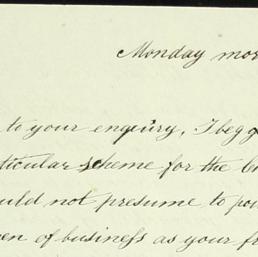 Monday mor
to your enquiry, I beg
ticular scheme for the
ould not presume to
en of business as your